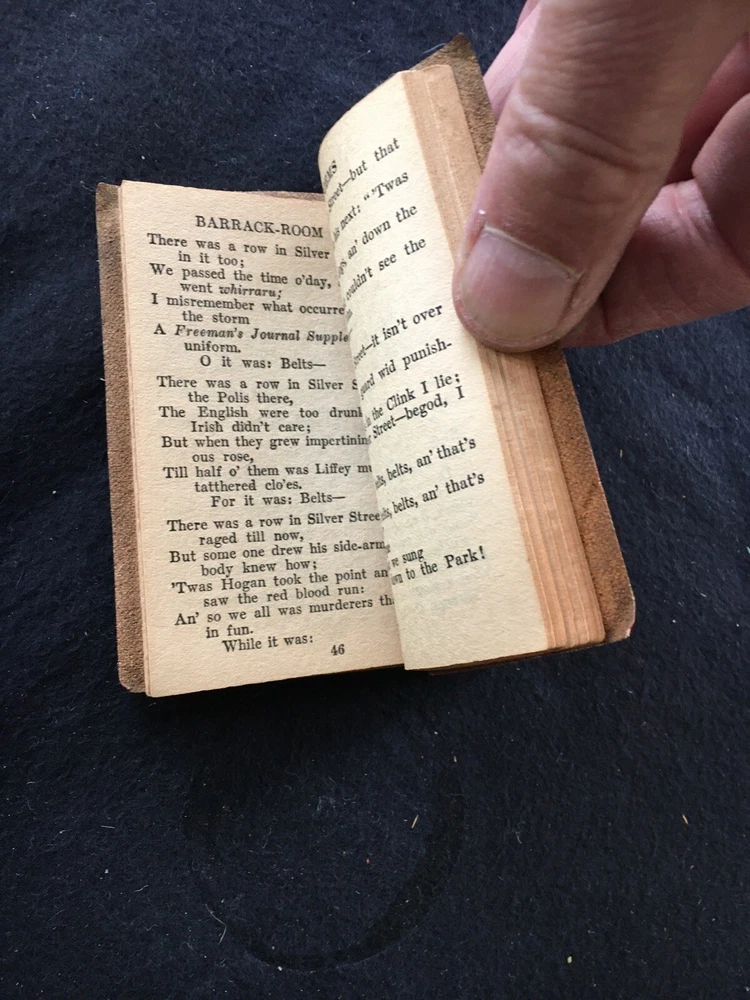 BARRACK-ROOM
There was a row in Silver
in it too;
We passed the time o'day,
went whirraru;
I misremember what occurre
the storm
A Freeman's Journal Supple
uniform.
O it was: Belts—
There was a row in Silver S
the Polis there,
The English were too drunk
Irish didn't care;
But when they grew impertinin
ous rose,
Till half o' them was Liffey mu
tatthered clo'es.
For it was: Belts—
There was a row in Silver Stree
raged till now,
But some one drew his side-arm
body knew how;
'Twas Hogan took the point an'
saw the red blood run:
An' so we all was murderers th
in fun.
While it was:
46
street—but that
next: "'Twas
an' down the
couldn't see the
—it isn't over
wid punish-
the Clink I lie;
Street—begod, I
belts, an' that's
belts, an' that's
we sung
to the Park!